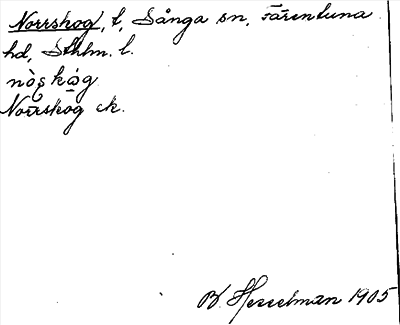 Norrskog, t, Sånga sn, Färentuna
hd, Sthlm. l.
Norrskog ek.
B. Hesselman 1905